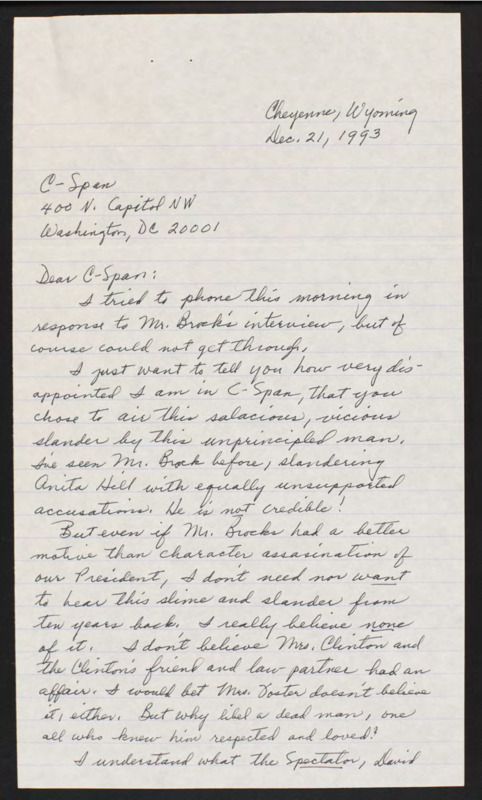 Cheyenne, Wyoming
Dec. 21, 1993
C-Span
400 N. Capitol NW
Washington, DC 20001
Dear C-Span:
I tried to phone this morning in
response to Mr. Brock's interview, but of
course could not get through.
I just want to tell you how very dis-
appointed I am in C-Span, that you
chose to air this salacious, vicious
slander by this unprincipled man.
I've seen Mr. Brock before, slandering
Anita Hill with equally unsupported
accusations. He is not credible!
But even if Mr. Brocks had a better
motive than character assasination of
our President, I don't need nor want
to hear this slime and slander from
ten years back. I really believe none
of it. I don't believe Mrs. Clinton and
the Clinton's friend and law partner had an
affair. I would bet Mrs. Foster doesn't believe
it, either. But why libel a dead man, one
all who knew him respected and loved?
I understand what the Spectator, David